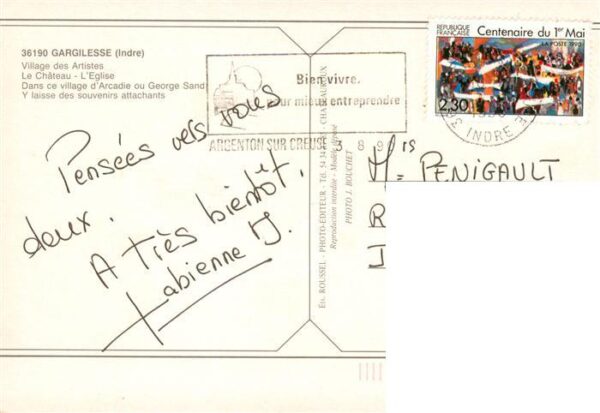 36190 GARGILESSE (Indre)
Village des Artistes
Le Château - L'Eglise
Dans ce village d'Arcadie ou George Sand
Y laisse des souvenirs attachants
Bien vivre.
mieux entreprendre
ARGENTON SUR CREUSE 3 8 9
REPUBLIQUE
FRANÇAISE
Centenaire du 1er Mai
LA POSTE 1990
2,30
36 INDRE
Pensées vers vous
deux.
A Très bientôt.
Fabienne J.
Ets. ROUSSEL - PHOTO-EDITEUR - Tél. 54 34 CHATEAUROUX
Reproduction interdite - Modèle déposé
PHOTO J. BOUCHET
Mis PENIGAULT
R